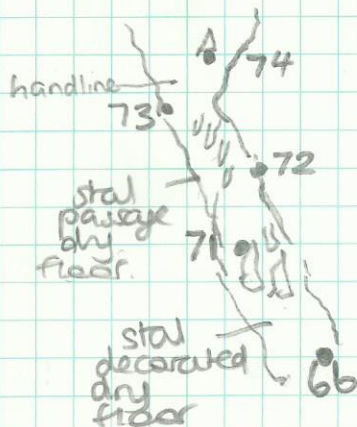 A
74
handline
73
72
stal
passage
dry
floor.
71
stal
decorated
dry
floor
66